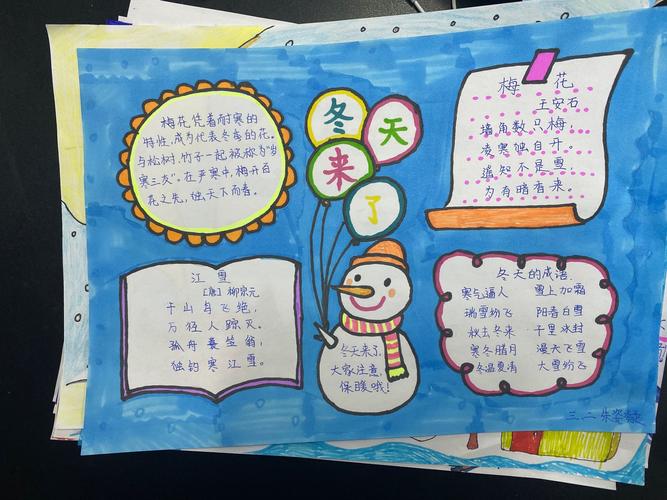 冬天
来了
梅花凭着耐寒的
特性,成为代表冬季的花。
与松树、竹子一起被称为"岁
寒三友"。在严寒中,梅开百
花之先,独天下而春。
梅 花
王安石
墙角数只梅,
凌寒独自开。
遥知不是雪,
为有暗香来。
江雪
[唐]柳宗元
千山鸟飞绝,
万径人踪灭。
孤舟蓑笠翁,
独钓寒江雪。
冬天来了,
大家注意
保暖哦!
冬天的成语
寒气逼人 雪上加霜
瑞雪纷飞 阳春白雪
秋去冬来 千里冰封
寒冬腊月 漫天飞雪
冬温夏凊 大雪纷飞
三.二 朱姿